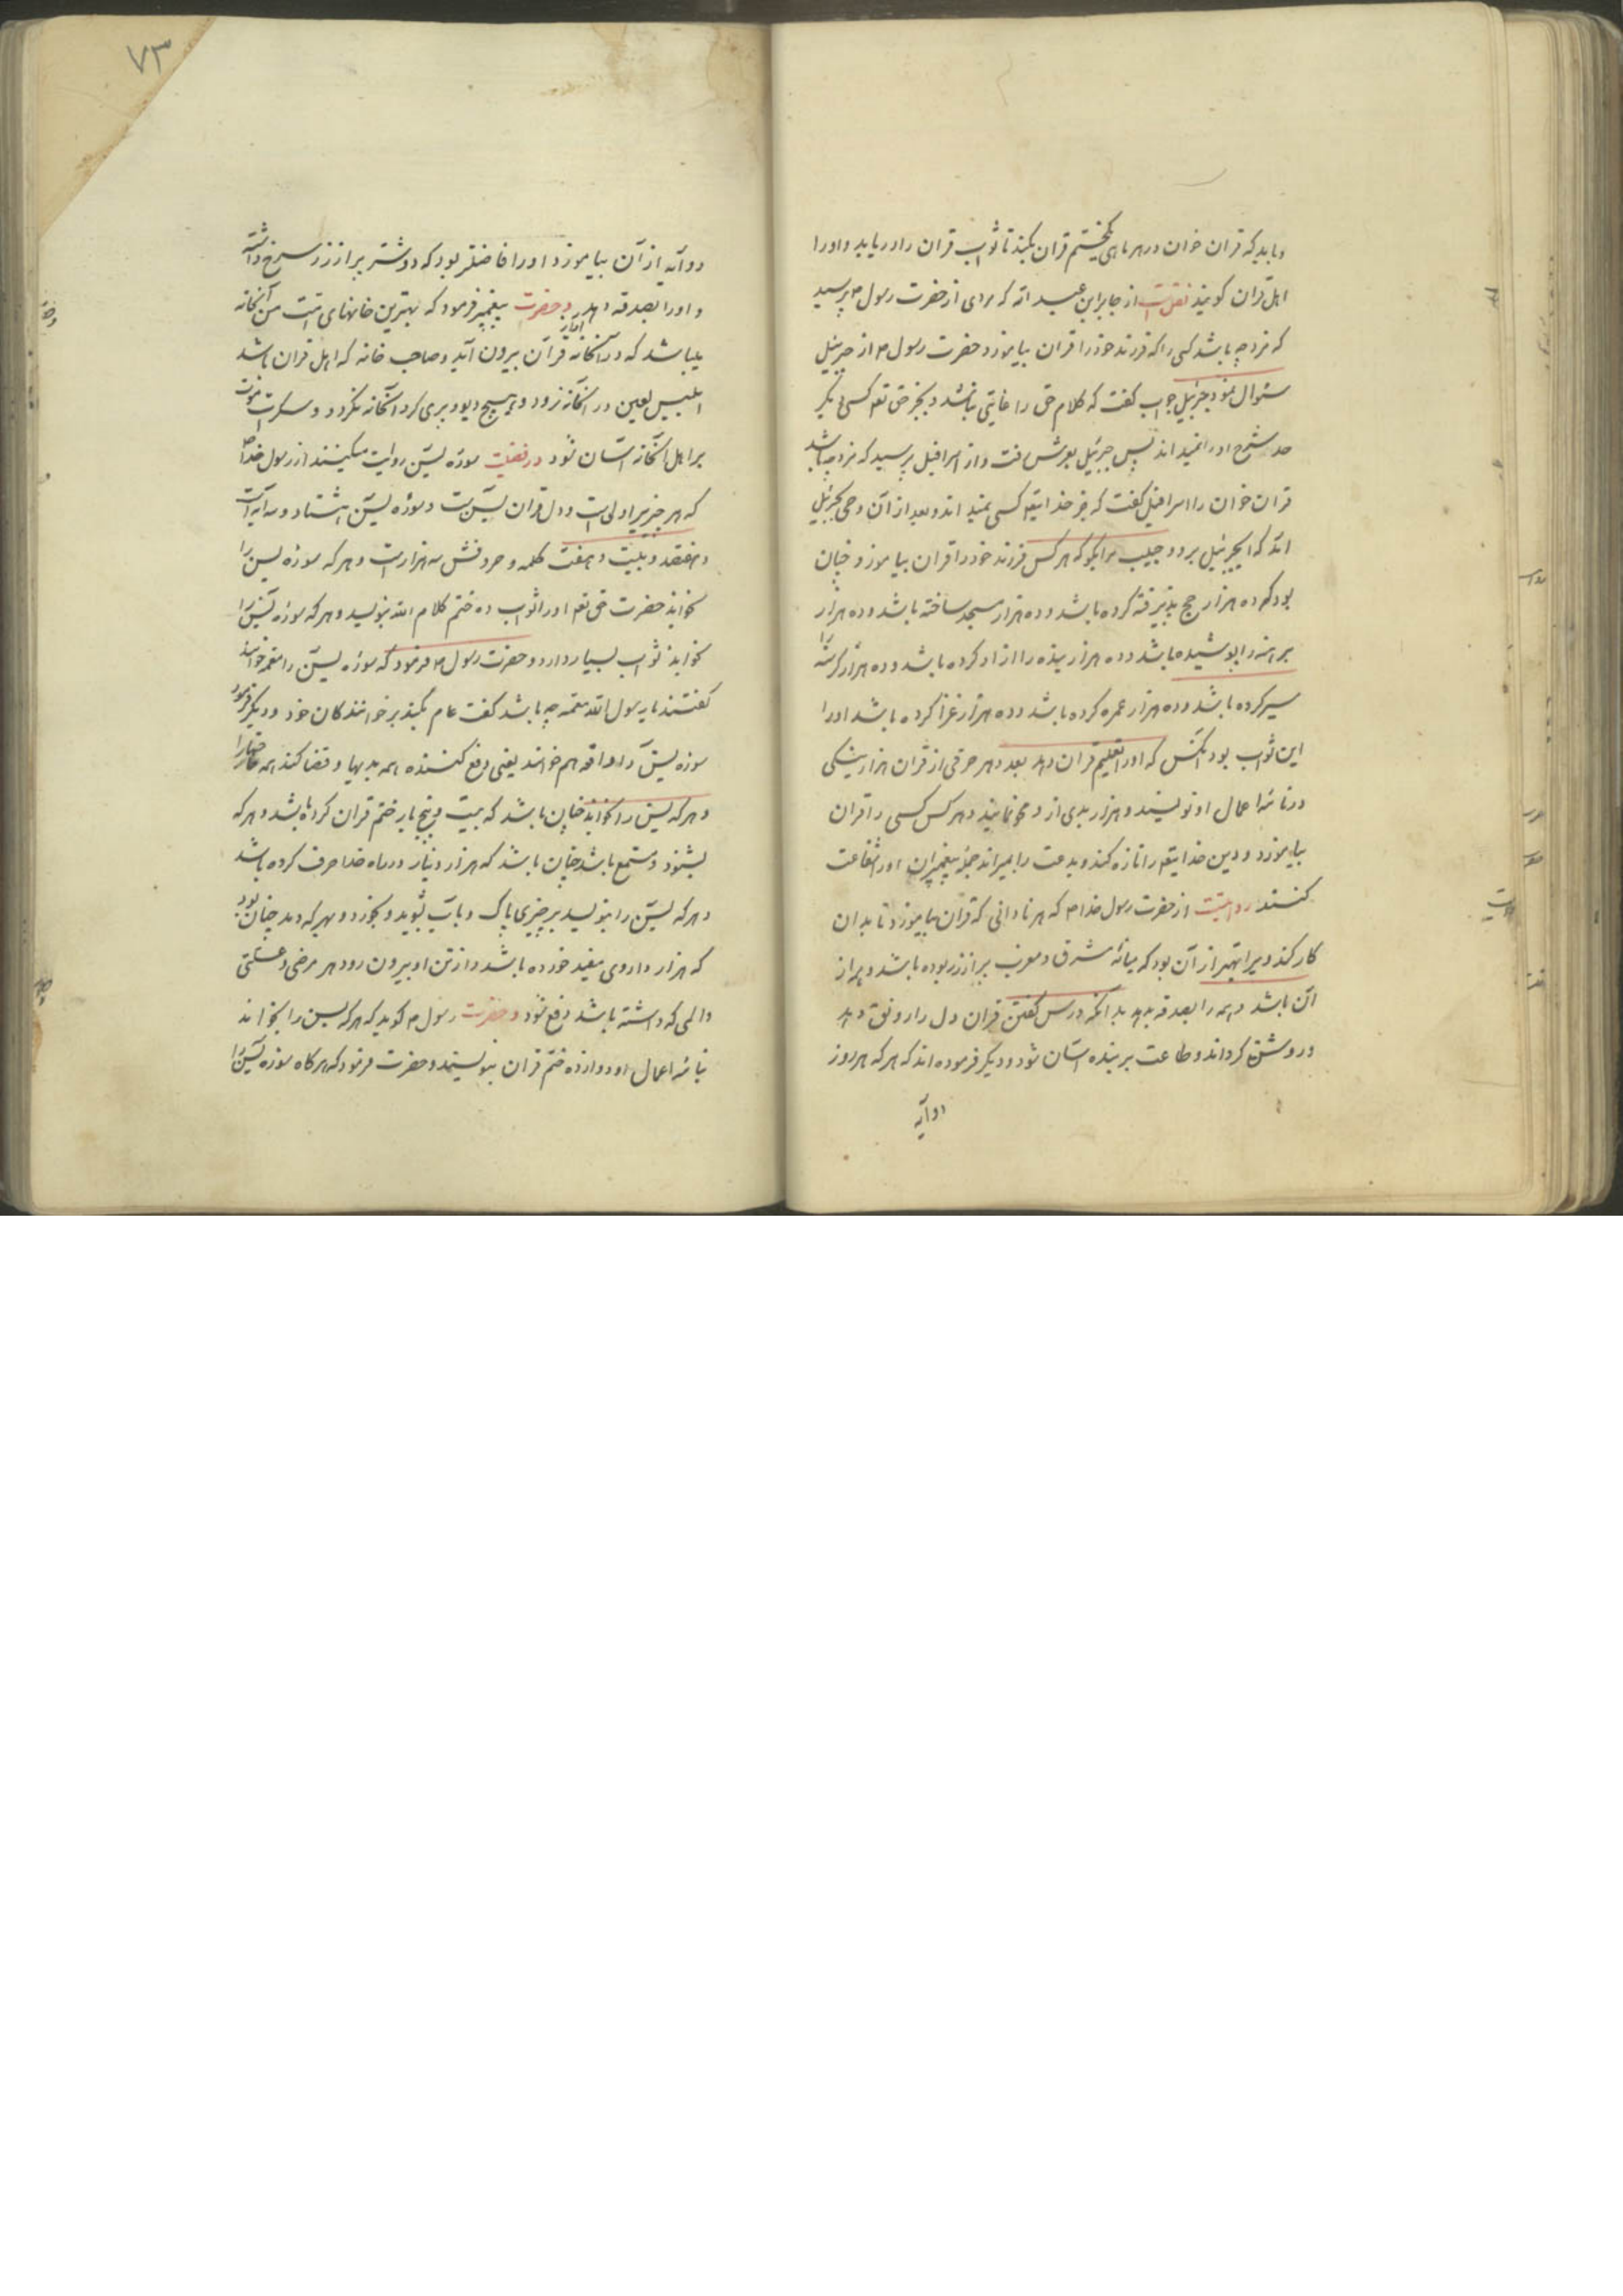 و باید که قران خوان در هر ماهی یکختم قران بکند تا ثواب قران را دریابد و او را
اهل قران کویند نقلست از جابر ابن عبد الله که مردی از حضرت رسول م پرسید
که مزد چه باشد کسی را که فرزند خود را قران بیاموزد حضرت رسول م از جبرئیل
سئوال نمود جبرئیل جواب کفت که کلام حق را غایتی نباشد و بجز حق تع کسی دیکر
شرح او را نمیداند پس جبرئیل بعرش رفت و از اسرافیل پرسید که مزد چه باشد
قران خوان را اسرافیل کفت که بجز خدایتع کسی نمیداند و بعد از آن وحی بجبرئیل
آمد که ای جبرئیل برو و حبیب مرا بکو که هر کس فرزند خود را قران بیاموزد چنان
بود که ده هزار حج پذیرفته کرده باشد و ده هزار مسجد ساخته باشد و ده هزار
برهنه را پوشیده باشد و ده هزار بنده را ازاد کرده باشد و ده هزار کرسنه را
سیر کرده باشد و ده هزار عمره کرده باشد و ده هزار غزا کرده باشد او را
این ثواب بود انکس که او را تعلیم قران دهد بعد هر حرفی از قران هزار نیکی
در نامهٔ اعمال او نویسند و هزار بدی از و محو نمایند و هر کس کسی را قران
بیاموزد و دین خدایتع را تازه کند و بدعت را بمیراند جمله پیغمبران او را شفاعت
کنند روایتست از حضرت رسول خدا م که هر نادانی که قران بیاموزد تا بدان
کار کند ویرا بهتر از آن بود که میانهٔ مشرق و مغرب پر از زر بوده باشد و پر از
آن باشد و همه را بصدقه بدهد بدانکه درس کفتن قران دل را رونق دهد
و روشن کرداند و طاعت بر بنده آسان شود و دیکر فرموده اند که هر که هر روز
دو آیه
۷۳
دو آیه از آن بیاموزد او را فاضلتر بود که دو شتر پر از زر سرخ داشته
و او را بصدقه دهد و حضرت پیغمبر فرمود که بهترین خانهای امت من آنخانه
باشد که در آنخانه آواز قرآن بیرون آید و صاحب خانه که اهل قران باشد
ابلیس لعین در آنخانه نرود و هیچ دیو و پری کرد آنخانه نکردد و سکرات موت
بر اهل آنخانه آسان شود در فضیلت سورهٔ یسن روایت میکنند از رسول خدا م
که هر چیزیرا دلی است و دل قران یسن است و سورهٔ یسن هشتاد و سه آیه است
و هفتصد و بیست و هفت کلمه و حروفش سه هزار است و هر که سورهٔ یسن را
بخواند حضرت حق تع او را ثواب ده ختم کلام الله بنویسد و هر که سوره یسن را
بخواند ثواب بسیار دارد و حضرت رسول م فرمود که سورهٔ یسن را معمه خوانند
کفتند یا رسول الله معمه چه باشد کفت عام بکند بر خوانندکان خود و دیکر فرمود
سوره یسن را دافعه هم خوانند یعنی دفع کننده همه بدیها و قضا کند همه حاجتها را
و هر که یسن را بخواند چنان باشد که بیست و پنج بار ختم قران کرده باشد و هر که
بشنود و مستمع باشد چنان باشد که هزار دینار در راه خدا صرف کرده باشد
و هر که یسن را بنویسد بر چیزی پاک و بآب بشوید و بخورد و بهر که دهد چنان بود
که هزار داروی مفید خورده باشد و از تن او بیرون رود هر مرضی و علتی
و المی که داشته باشد دفع شود و حضرت رسول م کوید که هر که یسن را بخواند
بنامهٔ اعمال او دوازده ختم قران بنویسند و حضرت فرمود که هرکاه سوره یسن را